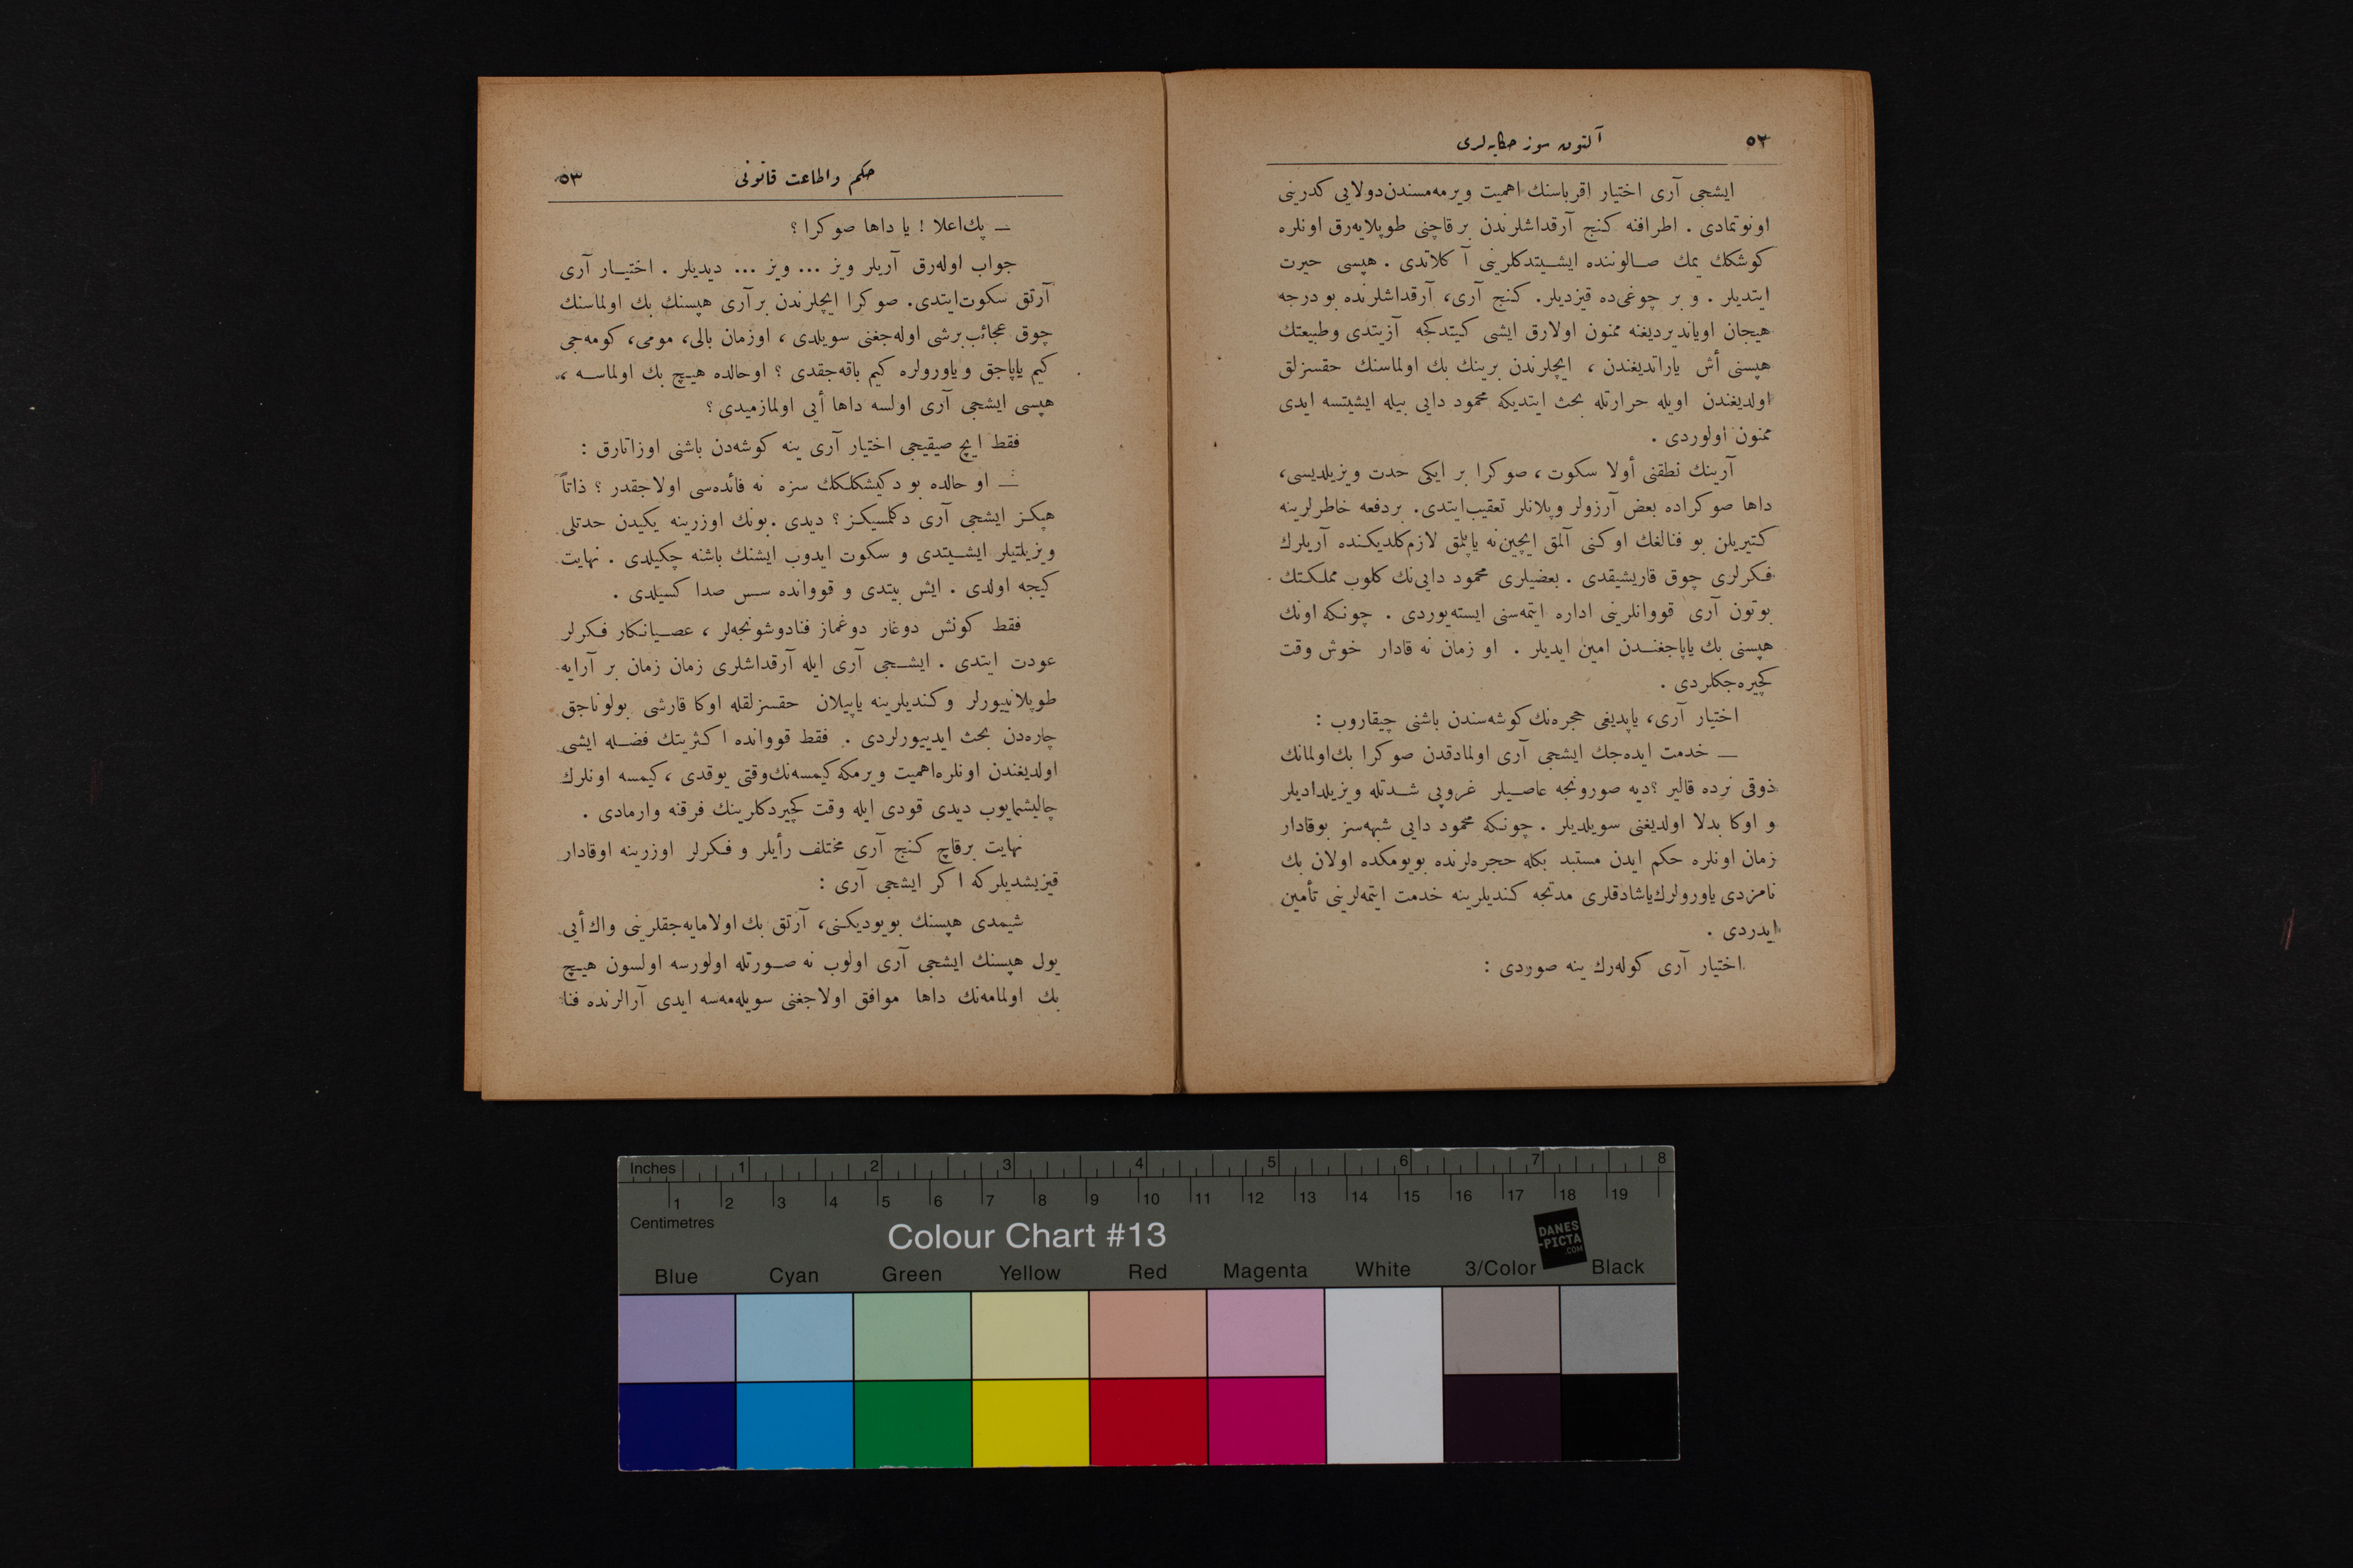 ٥٢
آلتون سوز حكايه‌لری
ايشجی آری اختيار اقرباسنك اهميت ويرمه‌مسندن دولايی كدرينی
اونوتمادی . اطرافنه كنج آرقداشلرندن برقاچنی طوپلايه‌رق اونلره
كوشكك يمك صالوننده ايشيتدكلرينی آ كلاتدی . هپسی حيرت
ايتديلر . و بر چوغی‌ده قيزديلر. كنج آری، آرقداشلرنده بو درجه
هيجان اوياندیرديغنه ممنون اولارق ايشی كيتدكجه آزيتدی وطبيعتك
هپسنی أش ياراتديغندن ، ايچلرندن برينك بك اولماسنك حقسزلق
اولديغندن اويله حرارتله بحث ايتديكه محمود دايی بيله ايشيتسه ايدی
ممنون اولوردی .
آرينك نطقنی أولا سكوت ، صوكرا بر ايكی حدت ويزيلديسی،
داها صوكراده بعض آرزولر وپلانلر تعقيب‌ايتدی. بردفعه خاطرلرينه
كتيريلن بو فنالغك اوكنی آلمق ايچين‌نه ياپلمق لازم‌كلديكنده آريلرك
فكرلری چوق قاريشيقدی . بعضيلری محمود دايی‌نك كلوب مملكتك
بوتون آری قووانلرينی اداره ايتمه‌سنی ايسته‌يوردی . چونكه اونك
هپسنی بك ياپاجغندن امين ايديلر . او زمان نه قادار خوش وقت
كچيره‌جكلردی .
اختيار آری، ياپديغی حجره‌نك كوشه‌سندن باشنی چيقاروب :
— خدمت ايده‌جك ايشجی آری اولمادقدن صوكرا بك‌اولمانك
ذوقی نرده قالير ؟ديه صورونجه عاصيلر غروپی شدتله ويزيلداديلر
و اوكا بدلا اولديغنی سويلديلر . چونكه محمود دايی شبهه‌سز بوقادار
زمان اونلره حكم ايدن مستبد بكله حجره‌لرنده بويومكده اولان بك
نامزدی ياورولرك‌ياشادقلری مدتجه كنديلرينه خدمت ايتمه‌لرينی تأمين
ايدردی .
اختيار آری كوله‌رك ينه صوردی :
حكم واطاعت قانونی
٥٣
— پك‌اعلا ! يا داها صوكرا ؟
جواب اوله‌رق آريلر ويز ... ويز ... ديديلر . اختيار آری
آرتق سكوت‌ايتدی. صوكرا ايچلرندن برآری هپسنك بك اولماسنك
چوق عجائب‌برشی اوله‌جغنی سويلدی ، اوزمان بالی، مومی، كومه‌جی
كيم ياپاجق وياورولره كيم باقه‌جقدی ؟ اوحالده هيچ بك اولماسه ،
هپسی ايشجی آری اولسه داها أيی اولمازميدی ؟
فقط ايچ صيقيجی اختيار آری ينه كوشه‌دن باشنی اوزاتارق :
— او حالده بو دكيشكلكك سزه نه فائده‌سی اولاجقدر ؟ ذاتاً
هپكز ايشجی آری دكلميسكز ؟ ديدی . بونك اوزرينه يكيدن حدتلی
ويزيلتيلر ايشيتدی و سكوت ايدوب ايشنك باشنه چكيلدی . نهايت
كيجه اولدی . ايش بيتدی و قووانده سس صدا كسيلدی .
فقط كونش دوغار دوغماز فنادوشونجه‌لر ، عصيانكار فكرلر
عودت ايتدی . ايشجی آری ايله آرقداشلری زمان زمان بر آرايه
طوپلانييورلر وكنديلرينه ياپيلان حقسزلقله اوكا قارشی بولوناجق
چاره‌دن بحث ايدييورلردی . فقط قووانده اكثريتك فضله ايشی
اولديغندن اونلره‌اهميت ويرمكه‌كيمسه‌نك‌وقتی يوقدی ، كيمسه اونلرك
چاليشمايوب ديدی قودی ايله وقت كچيردكلرينك فرقنه وارمادی .
نهايت برقاچ كنج آری مختلف رأيلر و فكرلر اوزرينه اوقادار
قيزيشديلركه اكر ايشجی آری :
شيمدی هپسنك بويوديكنی، آرتق بك اولامايه‌جقلرينی واك‌أيی
يول هپسنك ايشجی آری اولوب نه صورتله اولورسه اولسون هيچ
بك اولمامه‌نك داها موافق اولاجغنی سويله‌مه‌سه ايدی آرالرنده فنا
Inches 1 2 3 4 5 6 7 8
1 2 3 4 5 6 7 8 9 10 11 12 13 14 15 16 17 18 19
Centimetres
Colour Chart #13
DANES
-PICTA
.COM
Blue Cyan Green Yellow Red Magenta White 3/Color Black